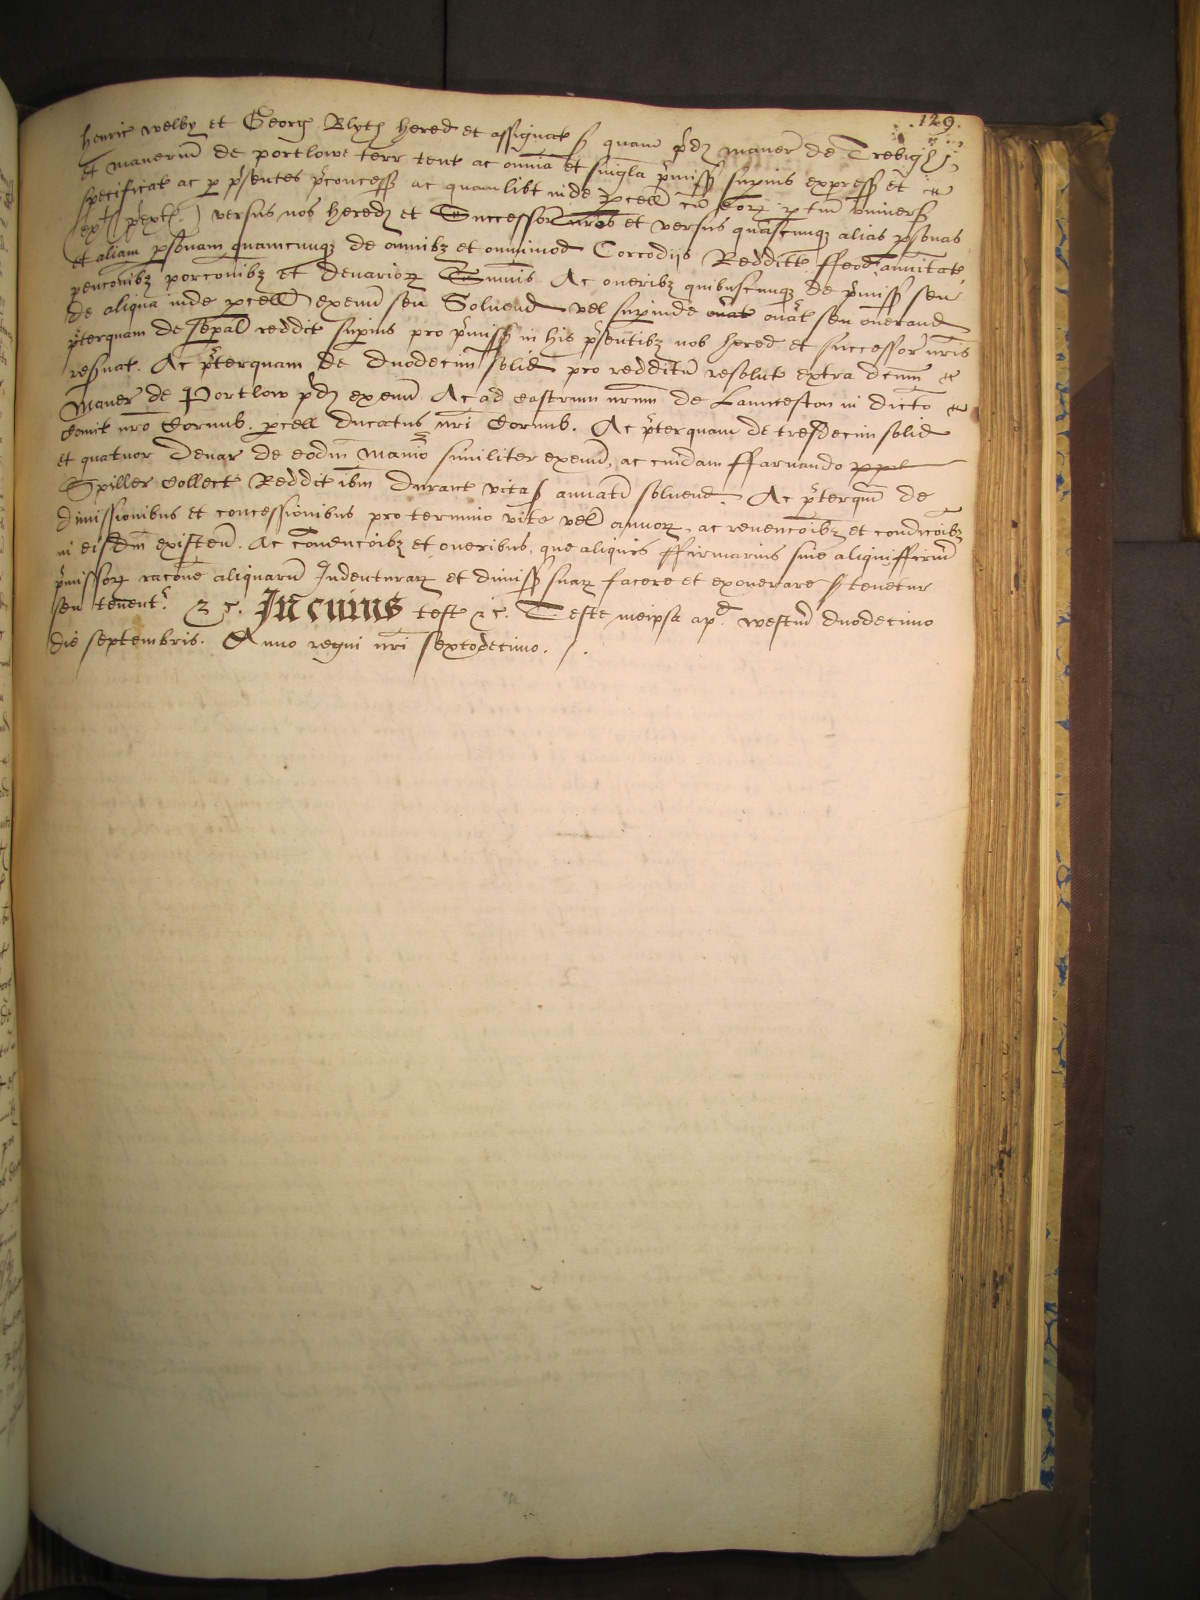 129.
Henric Welby et Georg Blyth hered et assignat s quam pred maner de Trebigh
et manerium de portlowe terr tent ac omnia et singla premiss superius express et
specificat ac per presentes preconcess ac quamlibt inde parcell cum eorum pertin univers
(except preexcept) versus nos hered et Successor nros et versus quascumq alias personas
et aliam personam quamcumq de omnibz et omnimod Corrodijs Reddit ffeod annitat
penconibz porconibz et denarior Summis Ac oneribz quibuscumq de premiss seu
de aliqua inde parcell exeun seu Solvend vel superinde onat seu onerand
preterquam de sepal reddit superius pro premiss in his presentibz nob hered et successor nris
reservat. Ac preterquam de duodecim solid pro redditu resolut extra dcum
Maner de Portlow pred exeun Ac ad castrum nrum de Launceston in dicto
Comit nro Cornub. parcell ducatus nri Cornub. Ac preterquam de tresdecim solid
et quatuor denar de eodm Manio similiter exeun, ac cuidam ffarnando
Spiller Collect Reddit ibm durant vita s annati solvend. Ac preterqm de
dimissionibus et concessionibus pro termino vite vel annor, ac convencoibz et condicoibz
in eisdm existen. Ac Convencoibz et oneribus, que aliquis ffirmarius sive aliqui ffirm
premissor racone aliquaru Indenturar et dimiss suar facere et exonerare tenetur
seu tenent. &c. In cuius test &c. Teste meipsa apd Westm duodecimo
die Septembris. Anno regni nri sextodecimo.